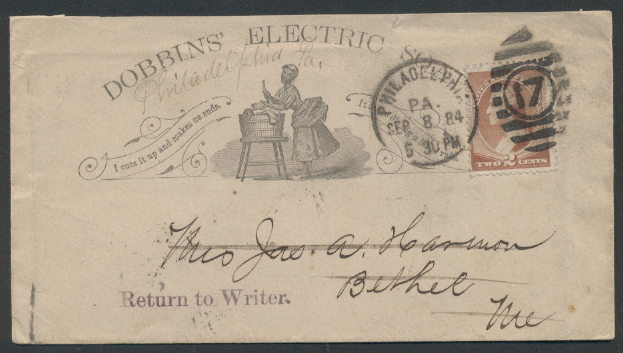 DOBBINS' ELECTRIC
Philadelphia Pa.
I cuts it up and makes us suds.
PHILADELPHIA
PA.
SEP 8 84
5 30 PM
17
TWO 2 CENTS
Jas. A. Harmon
Bethel
Me
Return to Writer.